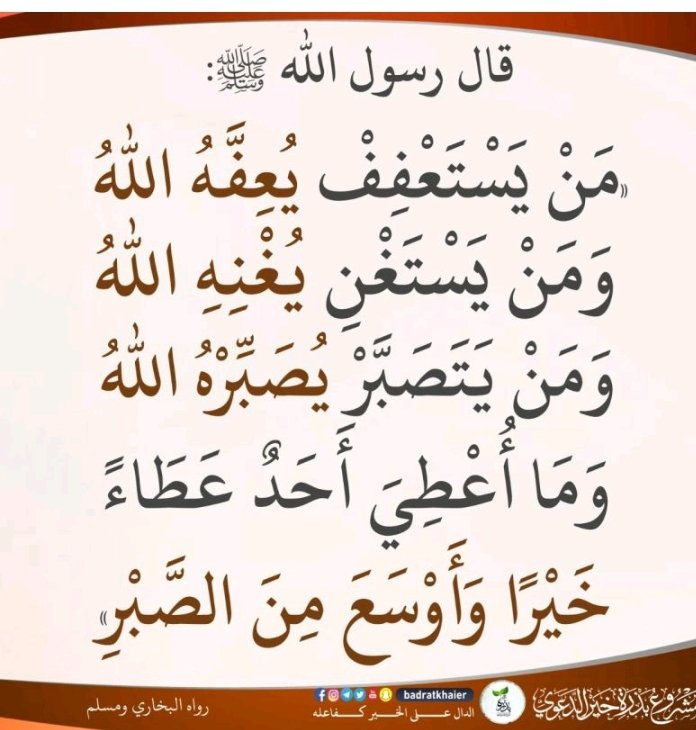 قال رسول الله ﷺ:
«مَنْ يَسْتَعْفِفْ يُعِفَّهُ اللهُ
وَمَنْ يَسْتَغْنِ يُغْنِهِ اللهُ
وَمَنْ يَتَصَبَّرْ يُصَبِّرْهُ اللهُ
وَمَا أُعْطِيَ أَحَدٌ عَطَاءً
خَيْرًا وَأَوْسَعَ مِنَ الصَّبْرِ»
مشروع بذرة خير الدعوي
بذرة
badratkhaier
الدال على الخير كفاعله
رواه البخاري ومسلم